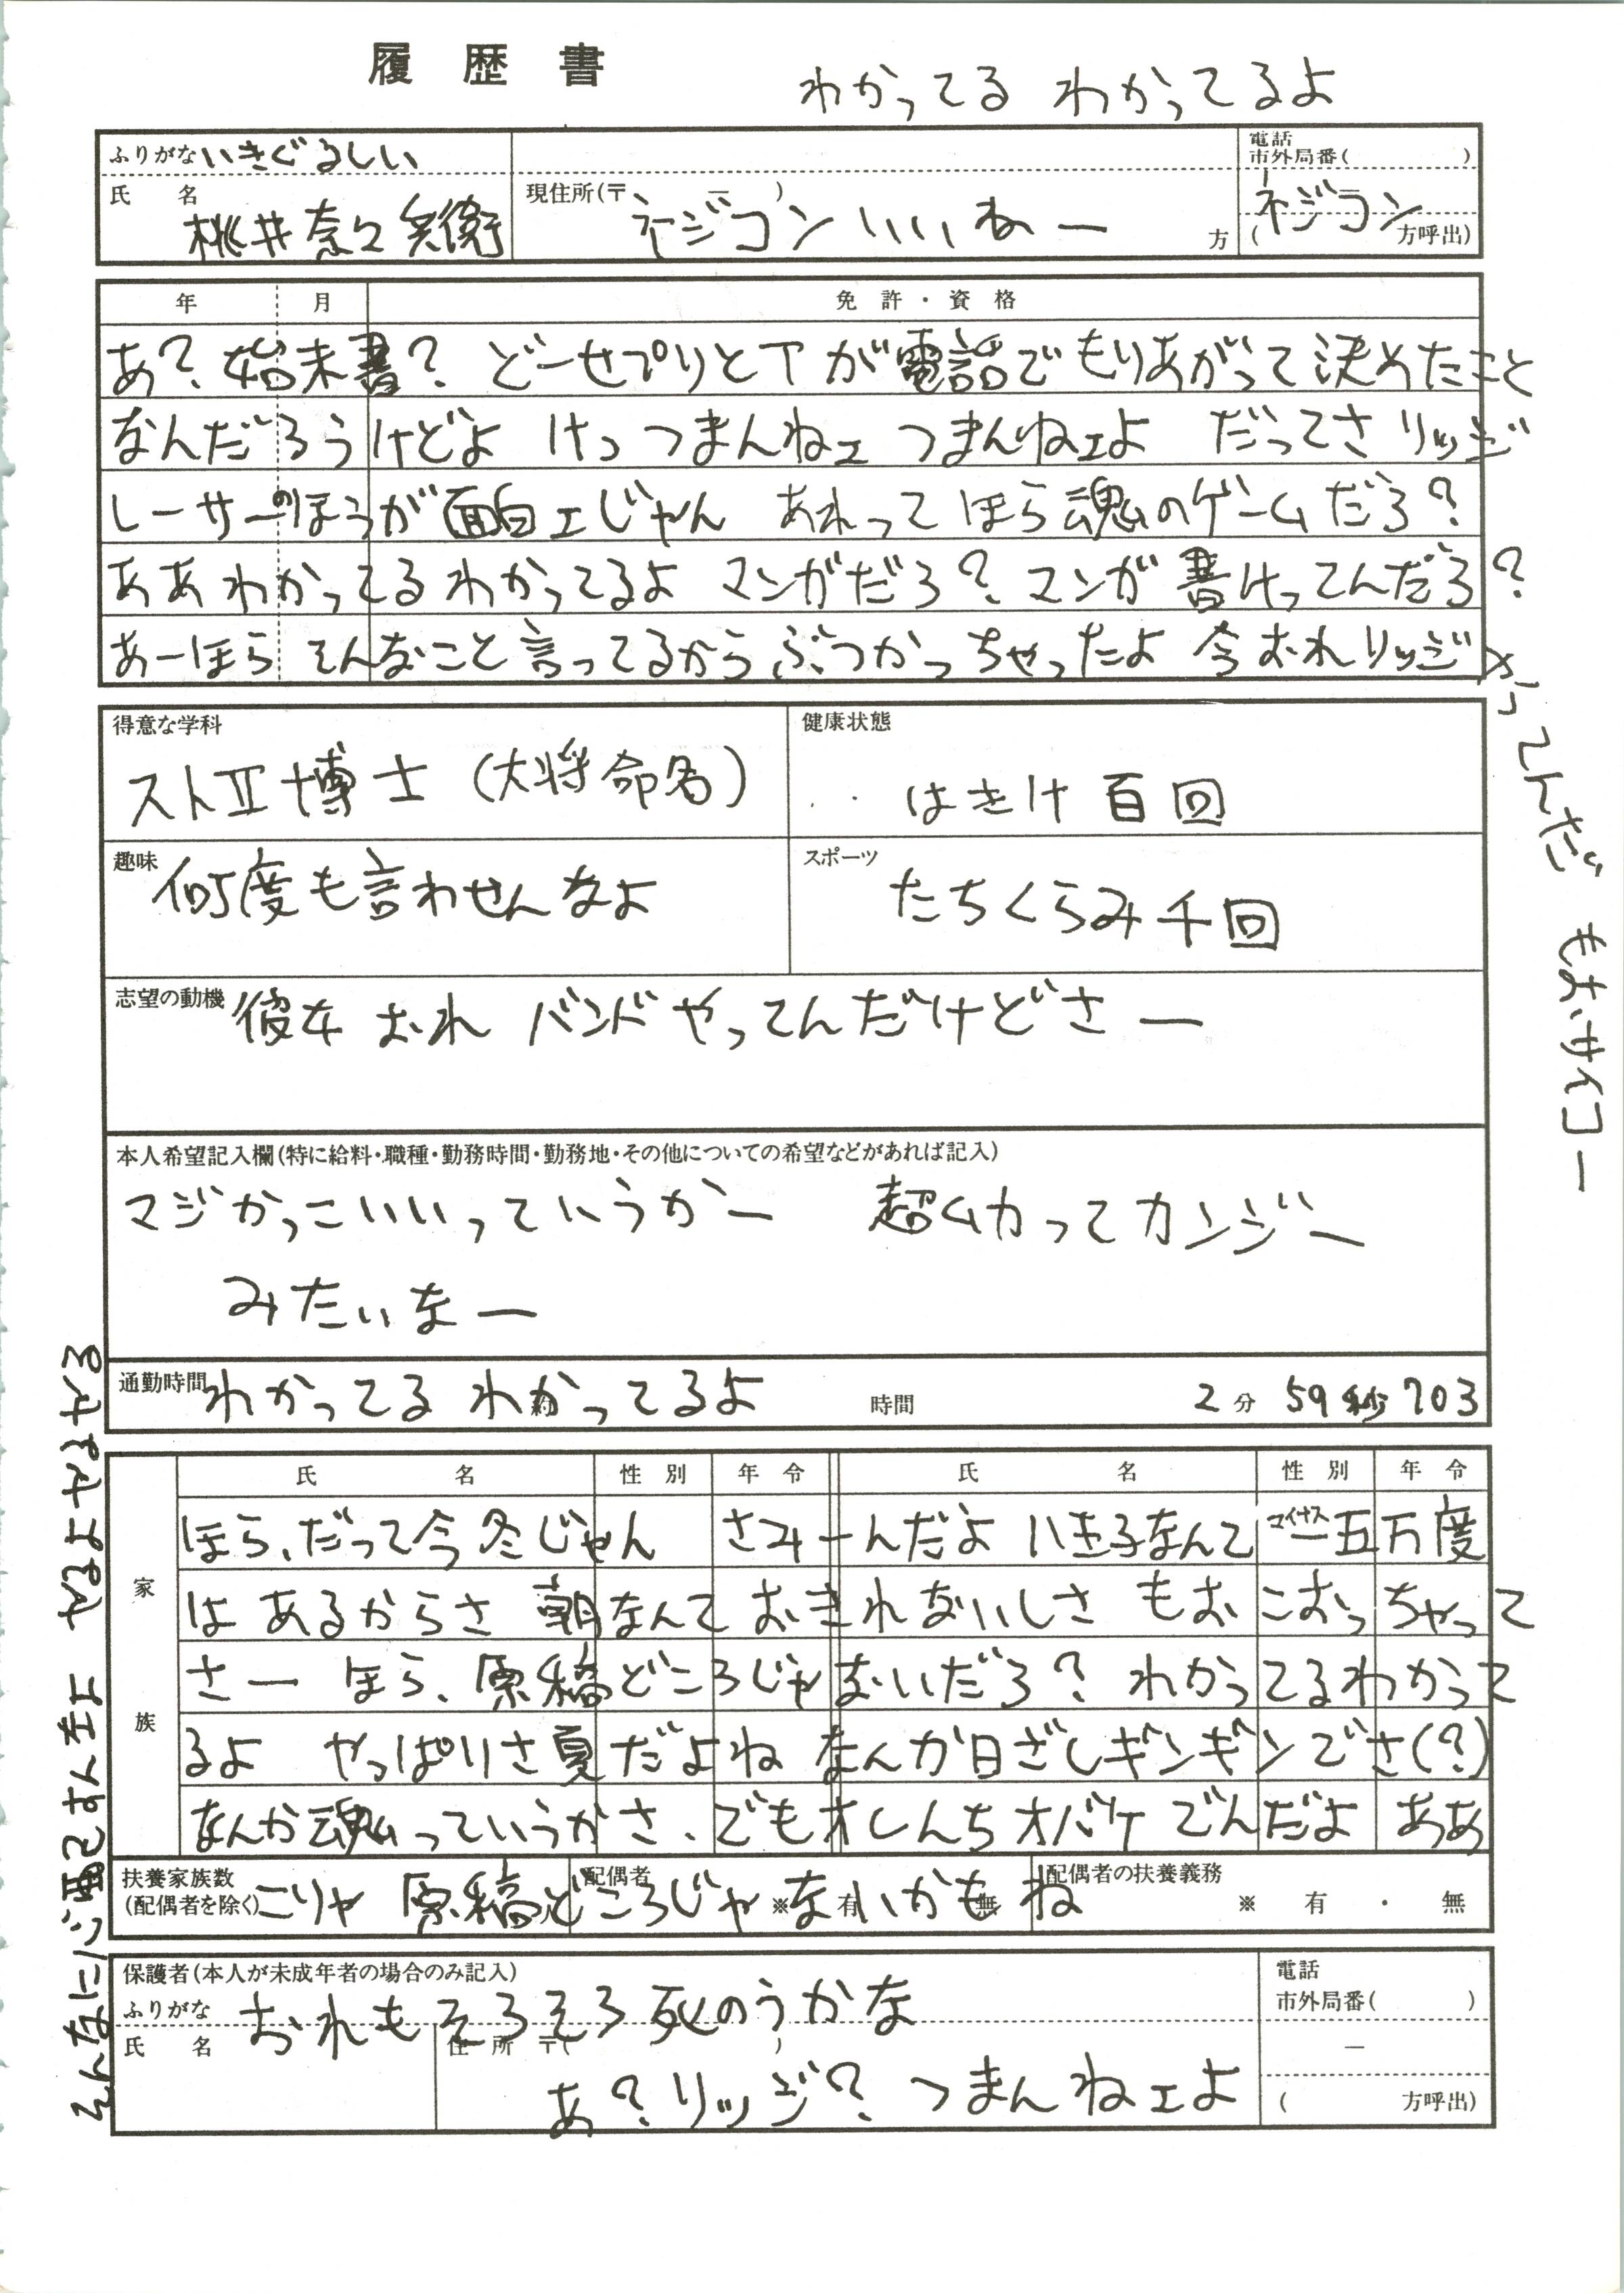 履歴書
わかってる わかってるよ
ふりがな いきぐるしい
電話
市外局番( )
氏 名
桃井奈々兵衛
現住所(〒 ー )
ネジコン いいねー
方
ネジコン
( 方呼出)
年 月 免許・資格
あ? 始末書? どーせプリとTが電話でもりあがって決めたこと
なんだろうけどよ けっ つまんねェ つまんねェよ だってさ リッジ
レーサーのほうが面白ェじゃん あれって ほら魂のゲームだろ?
ああわかってるわかってるよ マンガだろ? マンガ書けってんだろ?
あーほら そんなこと言ってるからぶつかっちゃったよ 今おれリッジ
やってんださ もおサイコー
得意な学科
ストⅡ博士(大将命名)
健康状態
はきけ百回
趣味
何度も言わせんなよ
スポーツ
たちくらみ千回
志望の動機
彼女 おれ バンドやってんだけどさー
本人希望記入欄(特に給料・職種・勤務時間・勤務地・その他についての希望などがあれば記入)
マジかっこいいっていうかー 超ムカってカンジー
みたいなー
通勤時間 わかってる わかってるよ 時間 2分 59秒703
家族
氏 名 性別 年令 氏 名 性別 年令
ほら、だって今冬じゃん さみーんだよ 八王子なんて マイナス 一五万度
は あるからさ 朝なんて おきれないしさ もお こおっちゃって
さー ほら、原稿どころじゃないだろ? わかってるわかって
るよ やっぱりさ夏だよね なんか日ざしギンギンでさ(?)
なんか魂っていうかさ、でもオレんちオバケでんだよ ああ
扶養家族数
(配偶者を除く)
配偶者
※ 有 無
配偶者の扶養義務
※ 有 ・ 無
こりゃ 原稿どころじゃないかもね
保護者(本人が未成年者の場合のみ記入)
ふりがな
おれもそろそろ死のうかな
電話
市外局番( )
氏 名
住 所 〒( )
ー
あ? リッジ? つまんねェよ
( 方呼出)
やるよやるやる